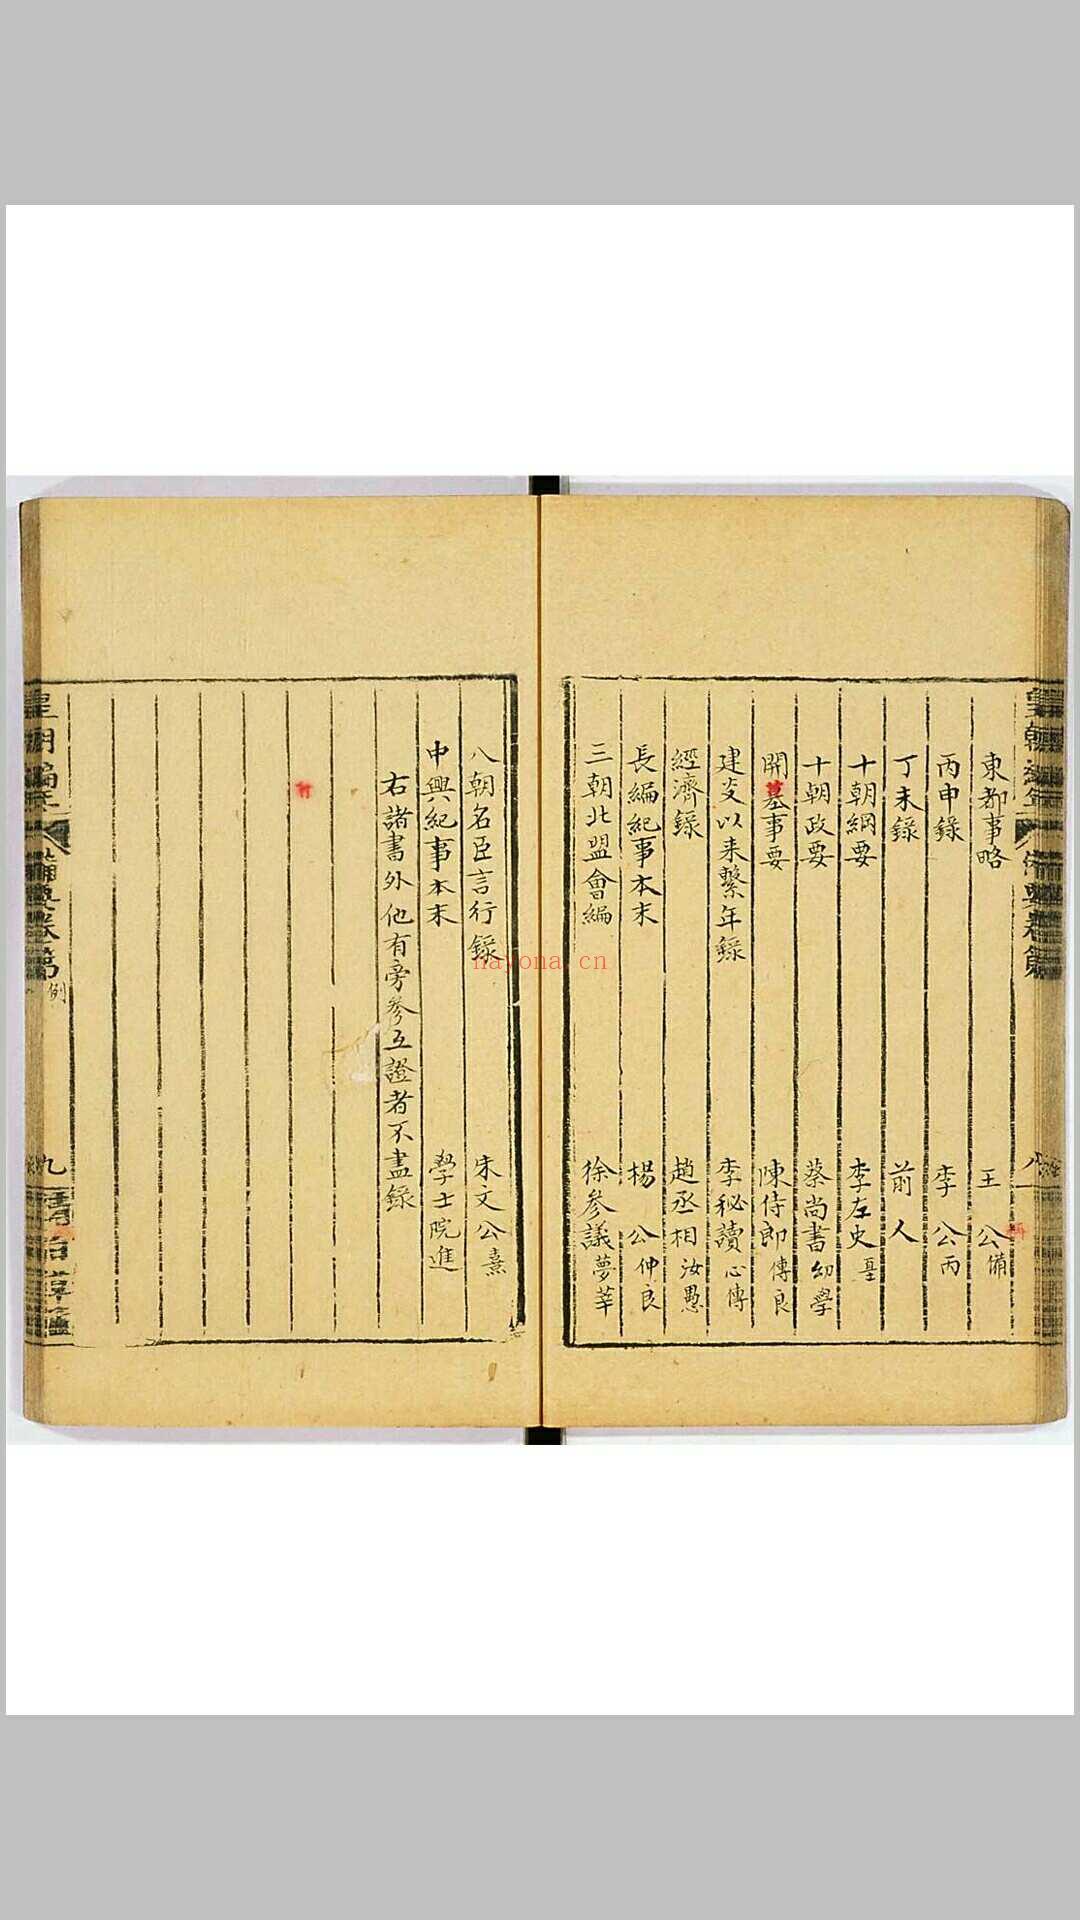 東都事略 王公偁
丙申錄 李公丙
丁未錄 前人
十朝綱要 李左史𡌴
十朝政要 蔡尚書幼學
開基事要 陳侍郎傅良
建炎以来繫年錄 李秘讀心傳
經濟錄 趙丞相汝愚
長編紀事本末 楊公仲良
三朝北盟會編 徐參議夢莘
八朝名臣言行錄 朱文公熹
中興紀事本末 學士院進
右諸書外他有旁參互證者不盡録
皇朝編年備要卷第
例
八
九
nayona.cn